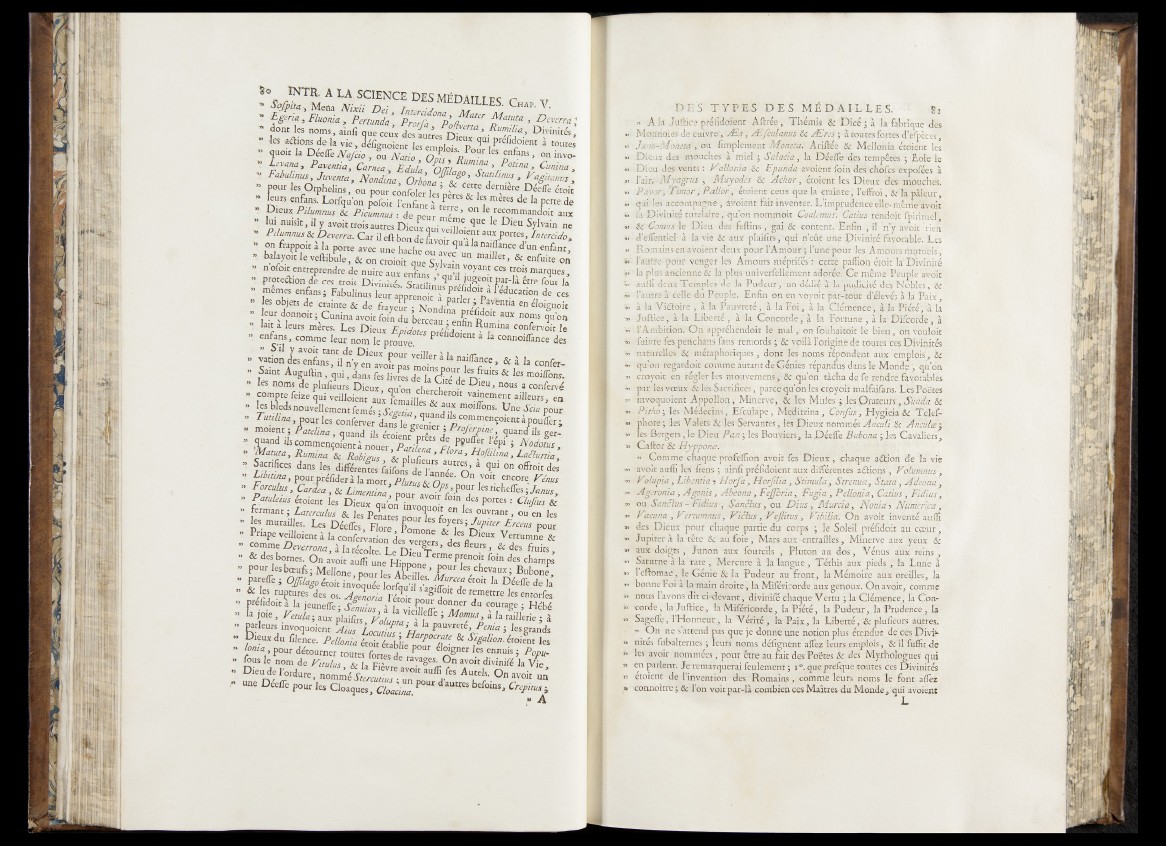 80 INTR. A LA SCIENCE DES MÉDAILLES. CHAP. V.
» Sospita, Mena Nixii Dei, Intercidona, Mater Matuta, Deverra ;
» Egeria, Fluonia, Pertunda, Prorsa, Postverta, Rumilia, Divinités,
» dont les noms, ainsi que ceux des autres Dieux qui présidoient à toutes
» les actions de la vie, désignoient les emplois. Pour les enfans, on invo-
» quoit la Déesse Nascio, ou Natio, Opis, Rumina, Potina, Cunina,
» Levana, Paventia, Carnea, Edula, Ossilago, Statilinus, Vagitanus,
» Fabulinus, Juventa, Nondina, Orbona ; & cette dernière Déesse étoit
» pour les Orphelins, ou pour consoler les pères & les mères de la perte de
» leurs enfans. Lorsqu'on posoit l'enfant à terre, on le recommandoit aux
» Dieux Pilumnus & Picumnus : de peur même que le Dieu Sylvain ne
» lui nuisît, il y avoit trois autres Dieux qui veilloient aux portes, Intercido,
» Pilumnus & Deverra. Car il est bon de savoir qu'à la naissance d'un enfant,
» on frappoit à la porte avec une hache ou avec un maillet, & ensuite on
» balayoit le vestibule, & on croioit que Sylvain voyant ces trois marques,
» n'osoit entreprendre de nuire aux enfans, qu'il jugeoit par-là être sous la
» protection de ces trois Divinités. Statilinus présidoit à l'éducation de ces
» mêmes enfans ; Fabulinus leur apprenoit à parler ; Paventia en éloignoit
» les objets de crainte & de frayeur ; Nondina présidoit aux noms qu'on
» leur donnoit ; Cunina avoit soin du berceau ; enfin Rumina conservoit le
» lait à leurs mères. Les Dieux Epidotes présidoient à la connoissance des
» enfans, comme leur nom le prouve.
» S'il y avoit tant de Dieux pour veiller à la naissance, & à la conser-
» vation des enfans, il n'y en avoit pas moins pour les fruits & les moissons.
» Saint Augustin, qui, dans ses livres de la Cité de Dieu, nous a conservé
» les noms de plusieurs Dieux, qu'on chercheroit vainement ailleurs, en
» compte seize qui veilloient aux semailles & aux moissons. Une Seia pour
» les bleds nouvellement semés ; Segetia, quand ils commençoient à pousser ;
» Tutilina, pour les conserver dans le grenier ; Proserpine, quand ils ger-
» moient ; Patelina, quand ils étoient prêts de pousser l'épi ; Nodotus,
» quand ils commençoient à nouer, Patilena, Flora, Hostilina, Lacturtia,
» Matuta, Rumina & Robigus, & plusieurs autres, à qui on offroit des
» Sacrifices dans les différentes saisons de l'année. On voit encore Vénus
» Libitina, pour présider à la mort, Plutus & Ops, pour les richesses ; Janus,
» Forculus, Cardea, & Limentina, pour avoir soin des portes : Clusius &
» Patuleius étoient les Dieux qu'on invoquoit en les ouvrant, ou en les
» fermant ; Laterculus & les Penates pour les foyers ; Jupiter Erceus pour
» les murailles. Les Déesses, Flore, Pomone & les Dieux Vertumne &
» Priape veilloient à la conservation des vergers, des fleurs, & des fruits,
» comme Deverrona, à la récolte. Le Dieu Terme prenoit soin des champs
» & des bornes. On avoit aussi une Hippone, pour les chevaux ; Bubone,
» pour les bœufs ; Mellone, pour les Abeilles. Murcea étoit la Déesse de la
» paresse ; Ossilago étoit invoquée lorsqu'il s'agissoit de remettre les entorses
» & les ruptures des os. Agenoria l'étoit pour donner du courage ; Hébé
» présidoit à la jeunesse ; Senuius, à la vieillesse ; Momus, à la raillerie ; à
» la joie, Vetula ; aux plaisirs, Volupta ; à la pauvreté, Penia ; les grands
» parleurs invoquoient Aius Locutius ; Harpocrate & Sigalion étoient les
» Dieux du silence. Pellonia étoit établie pour éloigner les ennuis ; Popu-
» lonia, pour détourner toutes sortes de ravages. On avoit divinisé la Vie,
» sous le nom de Vitulus, & la Fièvre avoit aussi ses Autels. On avoit un
» Dieu de l'ordure, nommé Stercutius : un pour d'autres besoins, Crepitus ;
» une Déesse pour les Cloaques, Cloacina.
» A
DES TYPES DES MÉDAILLES. 81
» A la Justice présidoient Astrée, Thémis & Dicé ; à la fabrique des
» Monnoies de cuivre, Æs, Æsculanus & Æres ; à toutes sortes d'espèces,
» Juno-Moneta, ou simplement Moneta. Aristée & Mellonia étoient les
» Dieux des mouches à miel ; Salacia, la Déesse des tempêtes ; Eole le
» Dieu des vents : Vallonia & Epunda avoient soin des choses exposées à
» l'air. Myagrus, Muyodes & Achor, étoient les Dieux des mouches.
» Pavor, Timor, Pallor, étoient ceux que la crainte, l'effroi, & la pâleur,
» qui les accompagne, avoient fait inventer. L'imprudence elle-même avoit
» sa Divinité tutelaire, qu'on nommoit Coalemus. Catius rendoit spirituel,
» & Comus le Dieu des festins, gai & content. Enfin, il n'y avoit rien
» d'essentiel à la vie & aux plaisirs, qui n'eût une Divinité favorable. Les
» Romains en avoient deux pour l'Amour ; l'une pour les Amours mutuels,
» l'autre pour venger les Amours méprisés : cette passion étoit la Divinité
» la plus ancienne & la plus universellement adorée. Ce même Peuple avoit
» aussi deux Temples de la Pudeur, un dédié à la pudicité des Nobles, &
» l'autre à celle du Peuple. Enfin on en voyoit par-tout d'élevé ; à la Paix,
» à la Victoire, à la Pauvreté, à la Foi, à la Clémence, à la Piété, à la
» Justice, à la Liberté, à la Concorde, à la Fortune, à la Discorde, à
» l'Ambition. On appréhendoit le mal, on souhaitoit le bien, on vouloit
» suivre ses penchans sans remords ; & voilà l'origine de toutes ces Divinités
» naturelles & métaphoriques, dont les noms répondent aux emplois, &
» qu'on regardoit comme autant de Génies répandus dans le Monde, qu'on
» croyoit en régler les mouvemens, & qu'on tâcha de se rendre favorables
» par les vœux & les Sacrifices, parce qu'on les croyoit malfaisans. Les Poëtes
» invoquoient Appollon, Minerve, & les Muses ; les Orateurs, Suada &
» Pitho ; les Médecins, Esculape, Meditrina, Consus, Hygieia & Teles-
» phore ; les Valets & les Servantes, les Dieux nommés Anculi & Anculæ ;
» les Bergers, le Dieu Pan ; les Bouviers, la Déesse Bubona ; les Cavaliers,
» Castor & Hyppone.
» Comme chaque profession avoit ses Dieux, chaque action de la vie
» avoit aussi les siens ; ainsi présidoient aux différentes actions, Volumnus,
» Volupia, Libentia, Horsa, Horsilia, Stimula, Strenua, Stata, Adeona,
» Ageronia, Agonis, Abeona, Fessoria, Fugia, Pellonia, Catius, Fidius,
» ou Sanctus-Fidius, Sanctus, ou Dius, Murcia, Nonia, Numerica,
» Vacuna, Vercumnus, Victus, Vestitus, Vibilia. On avoit inventé aussi
» des Dieux pour chaque partie du corps ; le Soleil présidoit au cœur,
» Jupiter à la tête & au foie, Mars aux entrailles, Minerve aux yeux &
» aux doigts, Junon aux sourcils, Pluton au dos, Vénus aux reins,
» Saturne à la rate, Mercure à la langue, Téthis aux pieds, la Lune à
» l'estomac, le Génie & la Pudeur au front, la Mémoire aux oreilles, la
» bonne Foi à la main droite, la Miséricorde aux genoux. On avoit, comme
» nous l'avons dit ci-devant, divinisé chaque Vertu ; la Clémence, la Con-
» corde, la Justice, la Miséricorde, la Piété, la Pudeur, la Prudence, la
» Sagesse, l'Honneur, la Vérité, la Paix, la Liberté, & plusieurs autres.
» On ne s'attend pas que je donne une notion plus étendue de ces Divi-
» nités subalternes ; leurs noms désignent assez leurs emplois, & il suffit de
» les avoir nommées, pour être au fait des Poëtes & des Mythologues qui
» en parlent. Je remarquerai seulement ; 1°. que presque toutes ces Divinités
» étoient de l'invention des Romains, comme leurs noms le font assez
» connoître ; & l'on voit par-là combien ces Maîtres du Monde, qui avoient
L